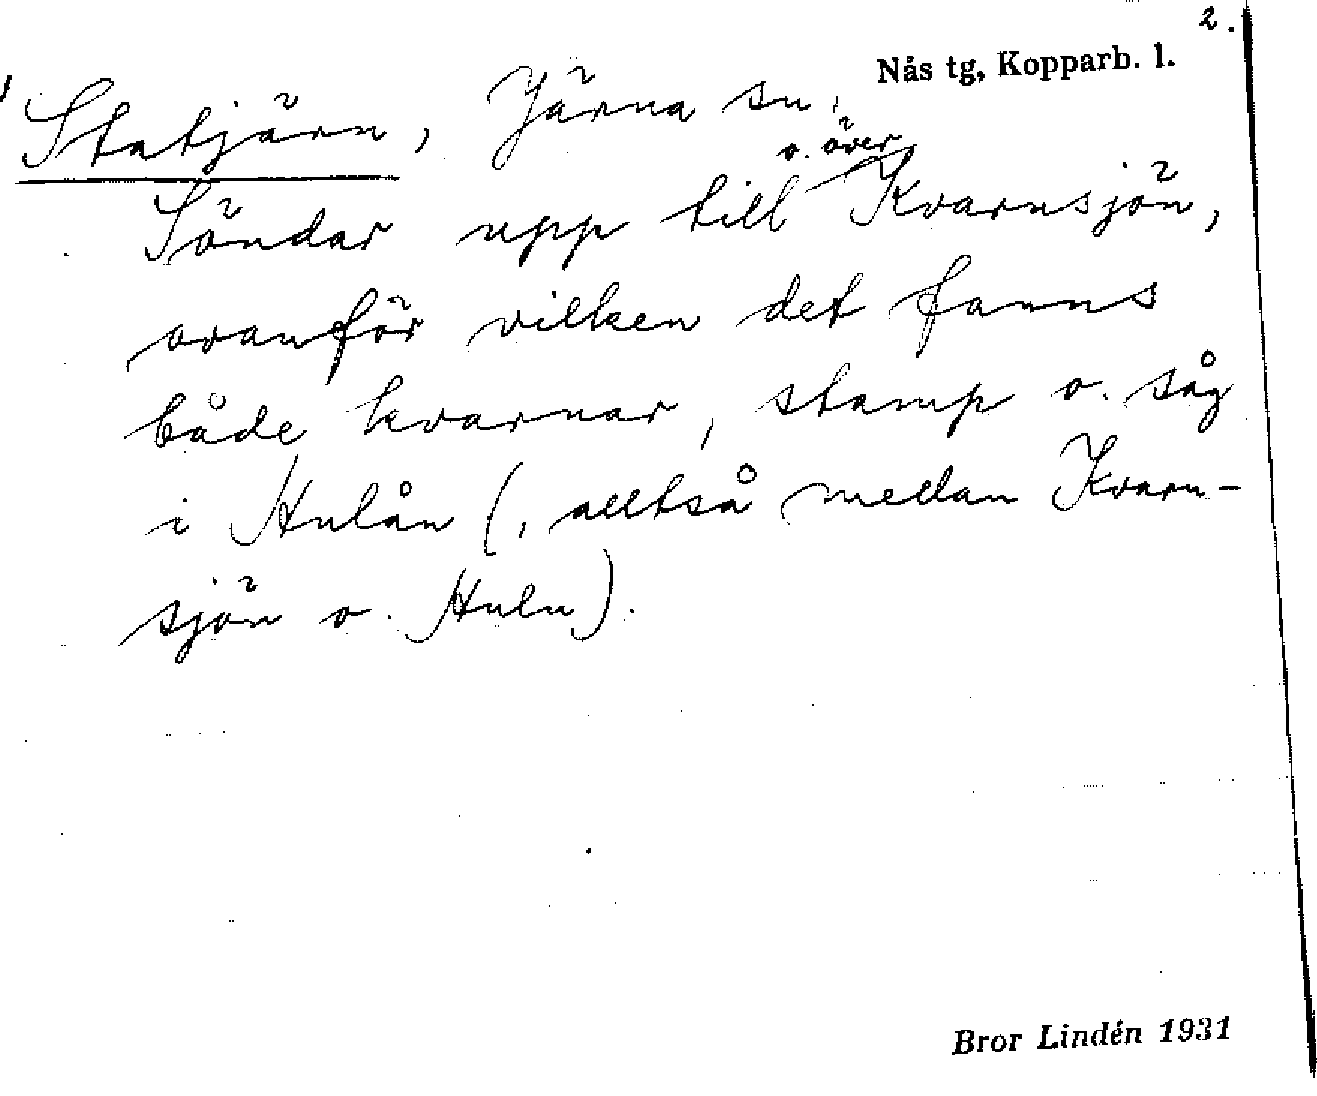 2.
Nås tg, Kopparb. l.
Statjärn, Järna sn,
o. över
Söndar upp till Kvarnsjön,
ovanför vilken det fanns
både kvarnar, stamp o. såg
i Hulån (, alltså mellan Kvarn-
sjön o. Huln).
Bror Lindén 1931